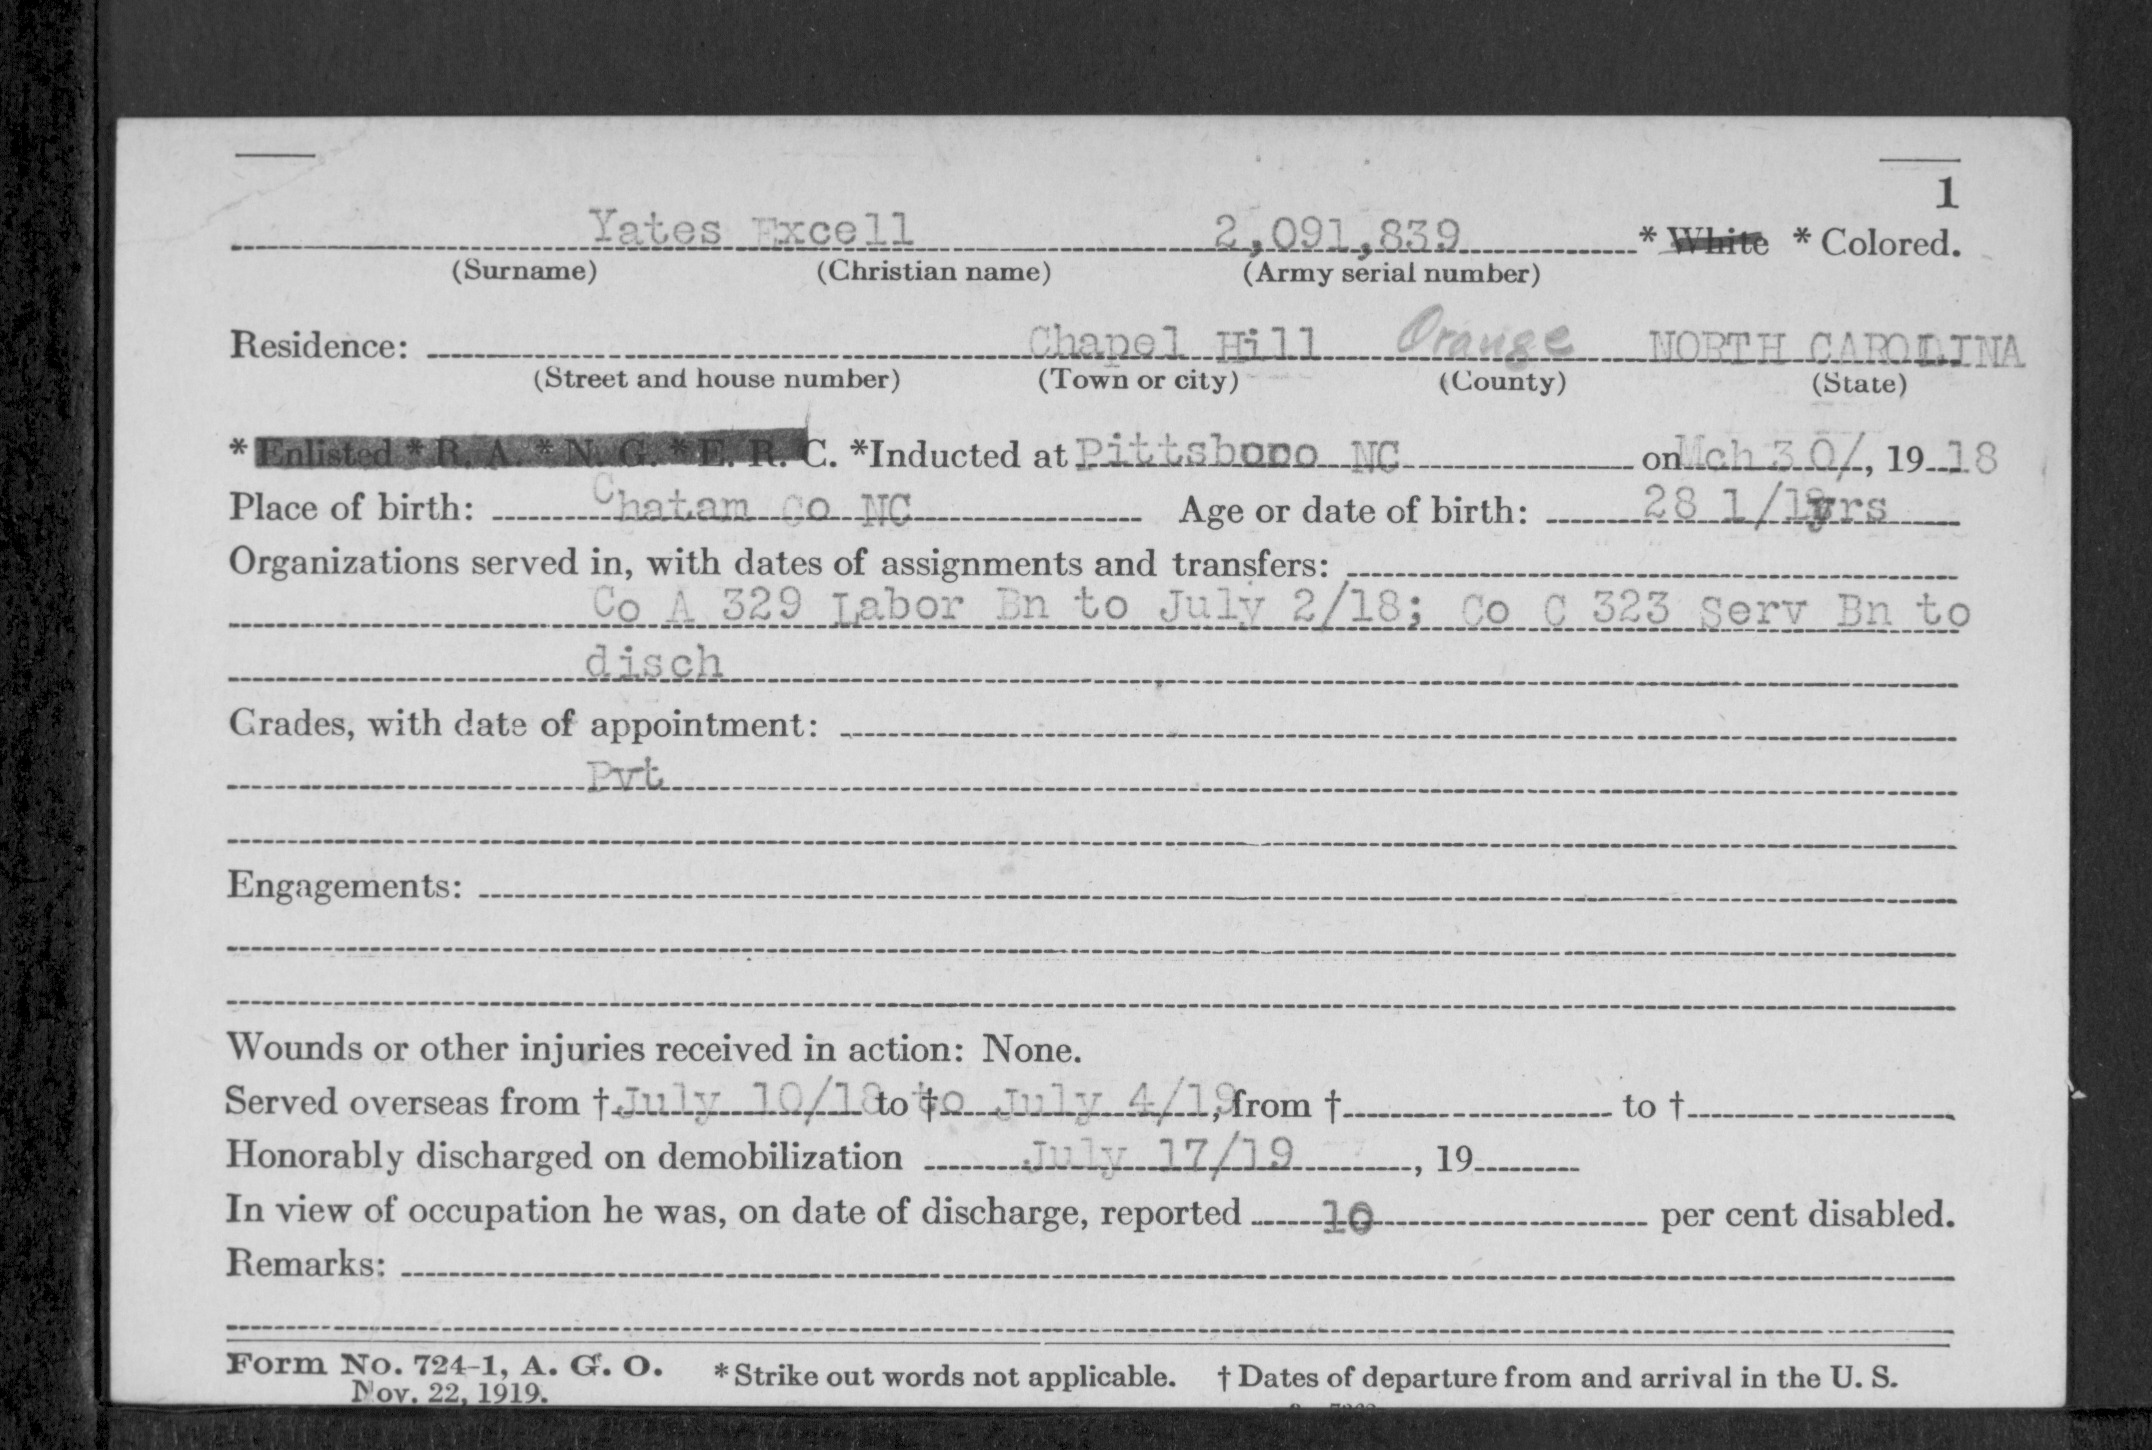 1
Yates Excell 2,091,839 * White * Colored.
(Surname) (Christian name) (Army serial number)
Residence: Chapel Hill Orange NORTH CAROLINA
(Street and house number) (Town or city) (County) (State)
* Enlisted * R. A. * N. G. * E. R. C. *Inducted at Pittsboro NC on Mch 30/, 19 18
Place of birth: Chatam Co NC Age or date of birth: 28 1/12 yrs
Organizations served in, with dates of assignments and transfers:
Co A 329 Labor Bn to July 2/18; Co C 323 Serv Bn to
disch
Grades, with date of appointment:
Pvt
Engagements:
Wounds or other injuries received in action: None.
Served overseas from † July 10/18 to † to July 4/19, from † to †
Honorably discharged on demobilization July 17/19, 19
In view of occupation he was, on date of discharge, reported 10 per cent disabled.
Remarks:
Form No. 724-1, A. G. O. * Strike out words not applicable. † Dates of departure from and arrival in the U. S.
Nov. 22, 1919.